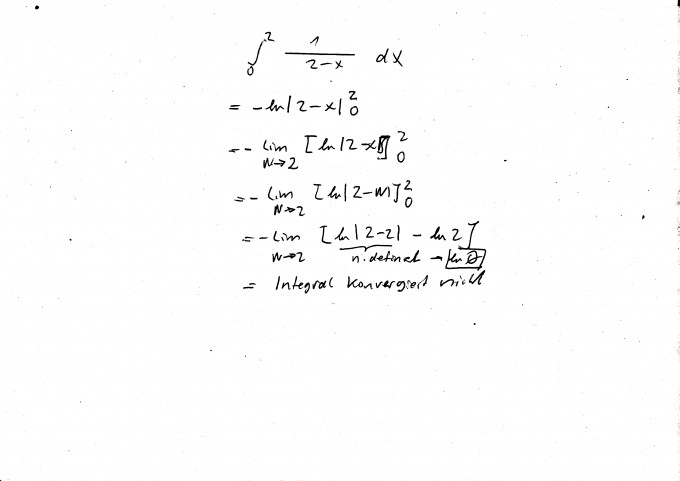 ∫₀² 1/(2-x) dx
= -ln|2-x| ₀²
= - lim N→2 [ln|2-x|] ₀²
= - lim N→2 [ln|2-N|] ₀²
= - lim N→2 [ln|2-2| - ln 2]
n. definiert → ln 0
= Integral konvergiert nicht